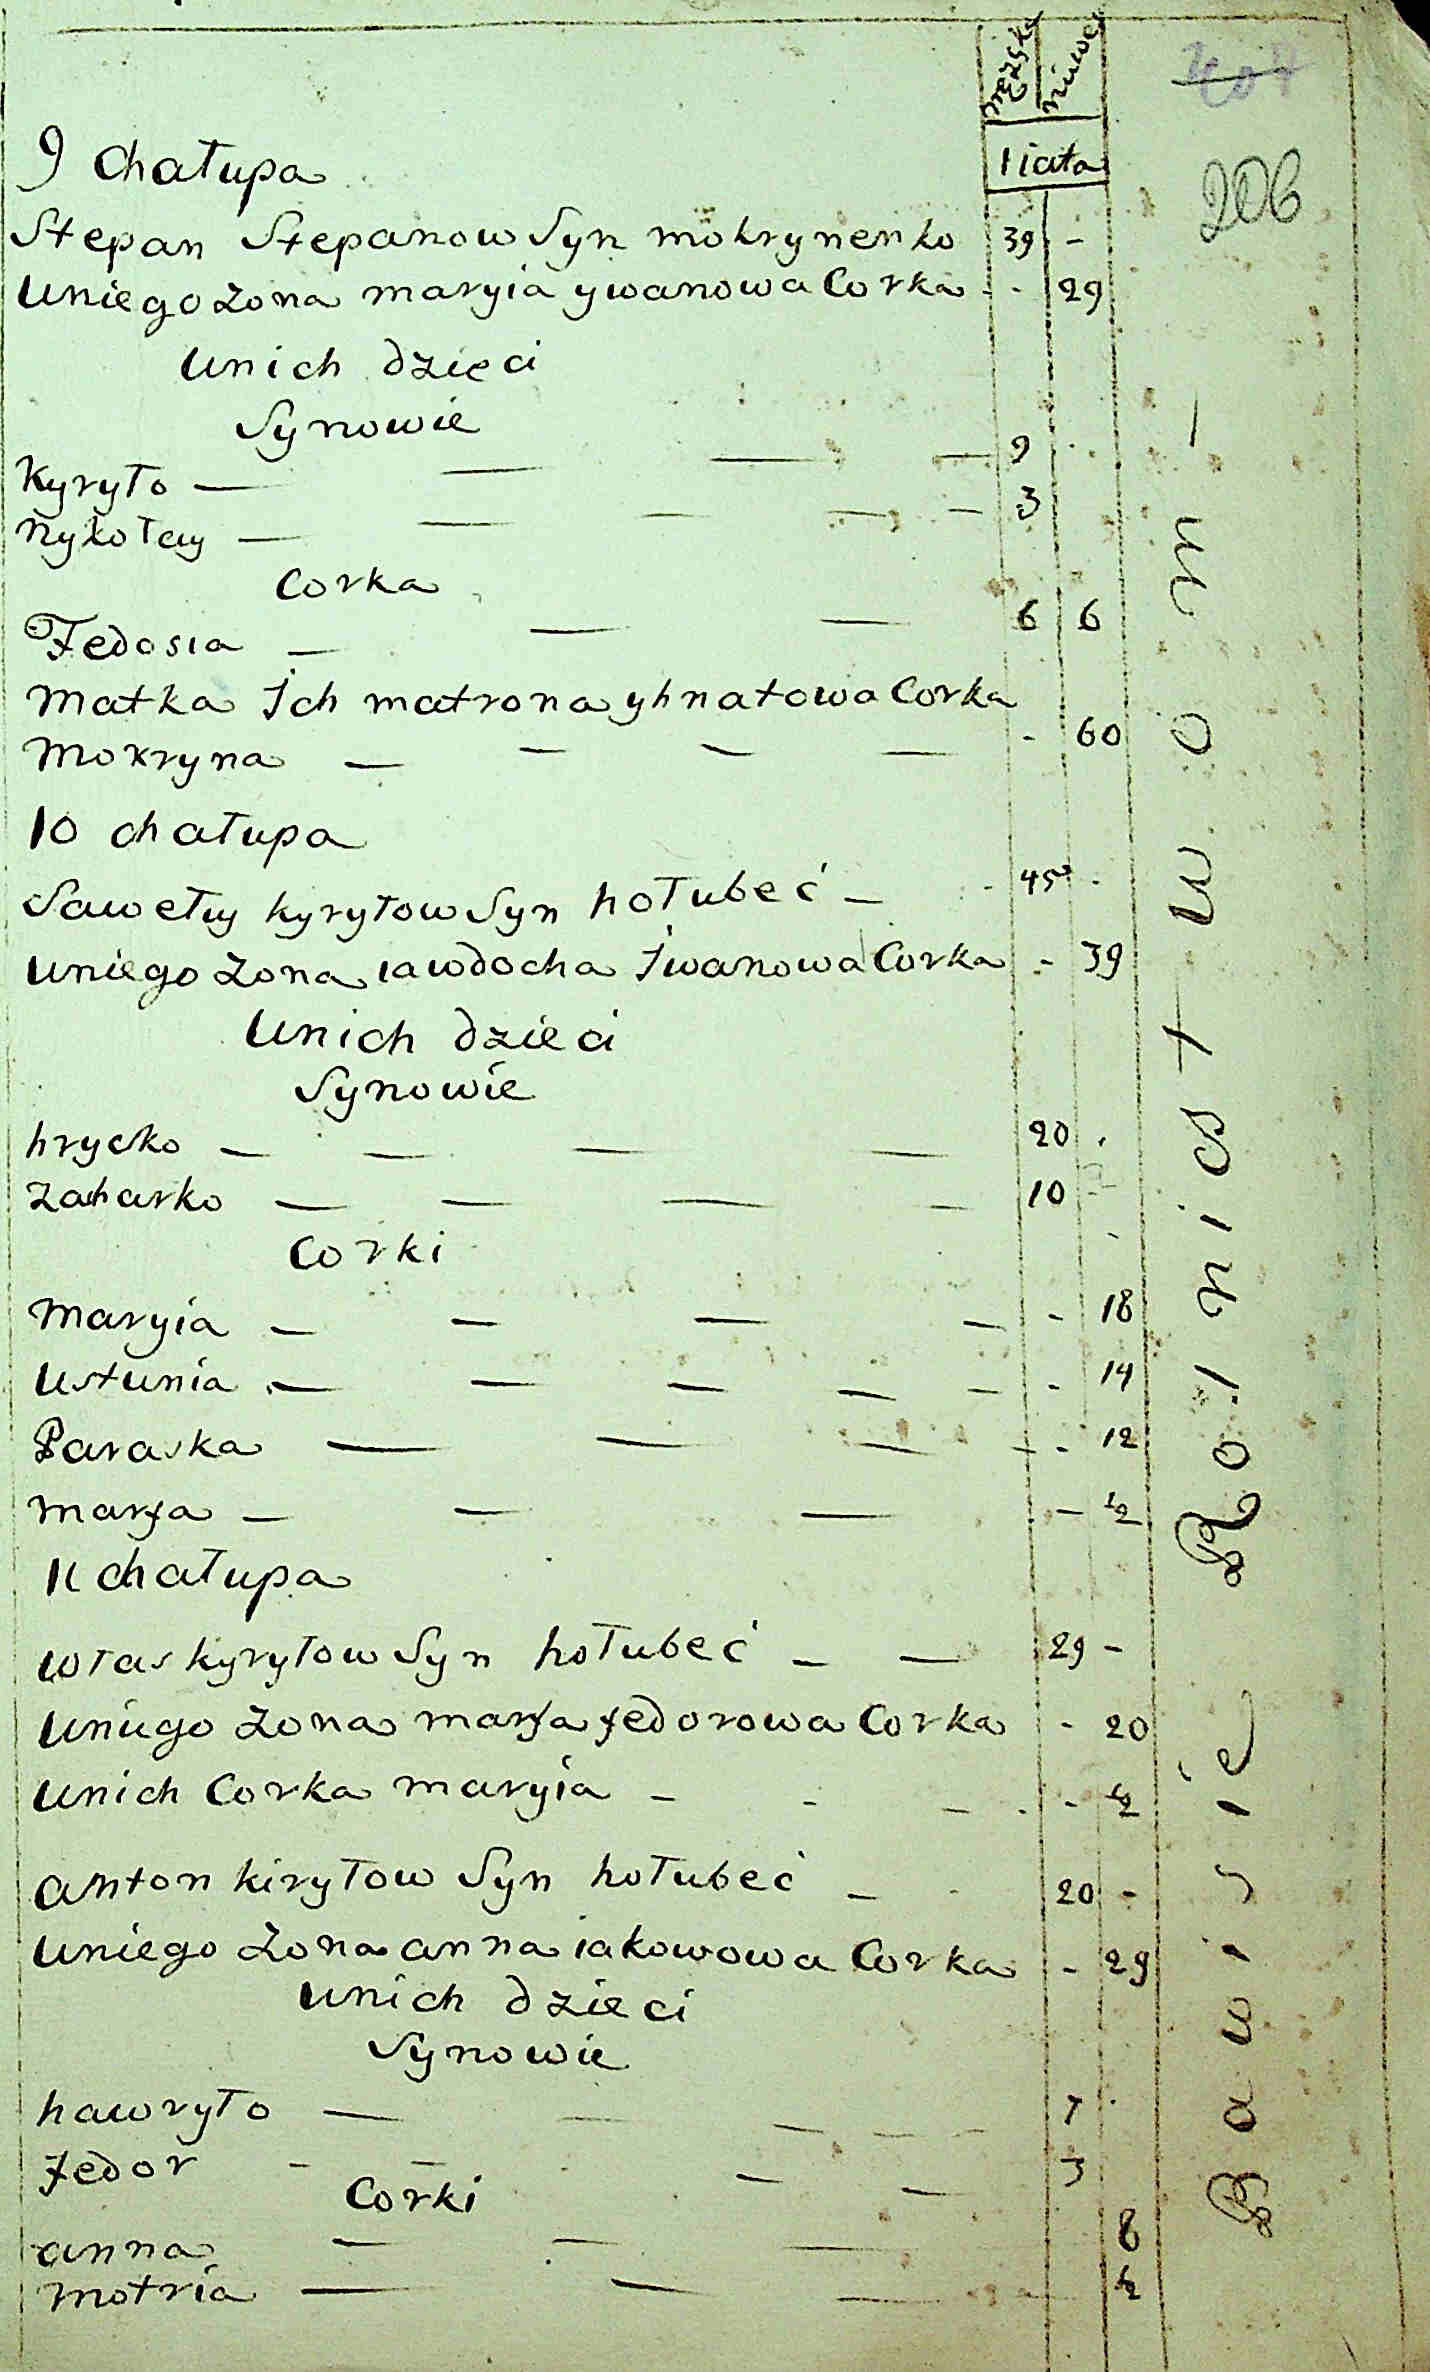 męzka
niwe
liata
206
9 chałupa
Stepan Stepanow Syn mokrynenko 39 -
Uniego żona maryia ywanowa Corka - - 29
Unich dzieci
Synowie
Kyryło — — — — 9
Nykołay — — — — — 3
Corka
Fedosia — — — 6 6
Matka Ich matrona yhnatowa Corka
Mokryna — — — — - 60
10 chałupa
Sawełiy kyryłow Syn hołubeć — - 45 -
Uniego żona iawdocha Iwanowa Corka - 39
Unich dzieci
Synowie
hrycko — — — — 20 .
zacharko — — — — 10 -
Corki
Maryia — — — — - 18
Ustunia — — — — — - 14
Paraska — — — - - 12
Marfa — — — - ½
11 chałupa
Włas kyryłow Syn hołubeć — — 29 -
Uniego żona marfa fedorowa Corka - 20
Unich Corka maryia — - — - - ½
anton kiryłow Syn hołubeć — - 20 -
Uniego żona anna iakowowa Corka - 29
Unich dzieci
Synowie
hawryło — — — — — 7 .
fedor - — — — 3
Corki
anna — — — 8
Motria — — — ½
Rolnictwom -